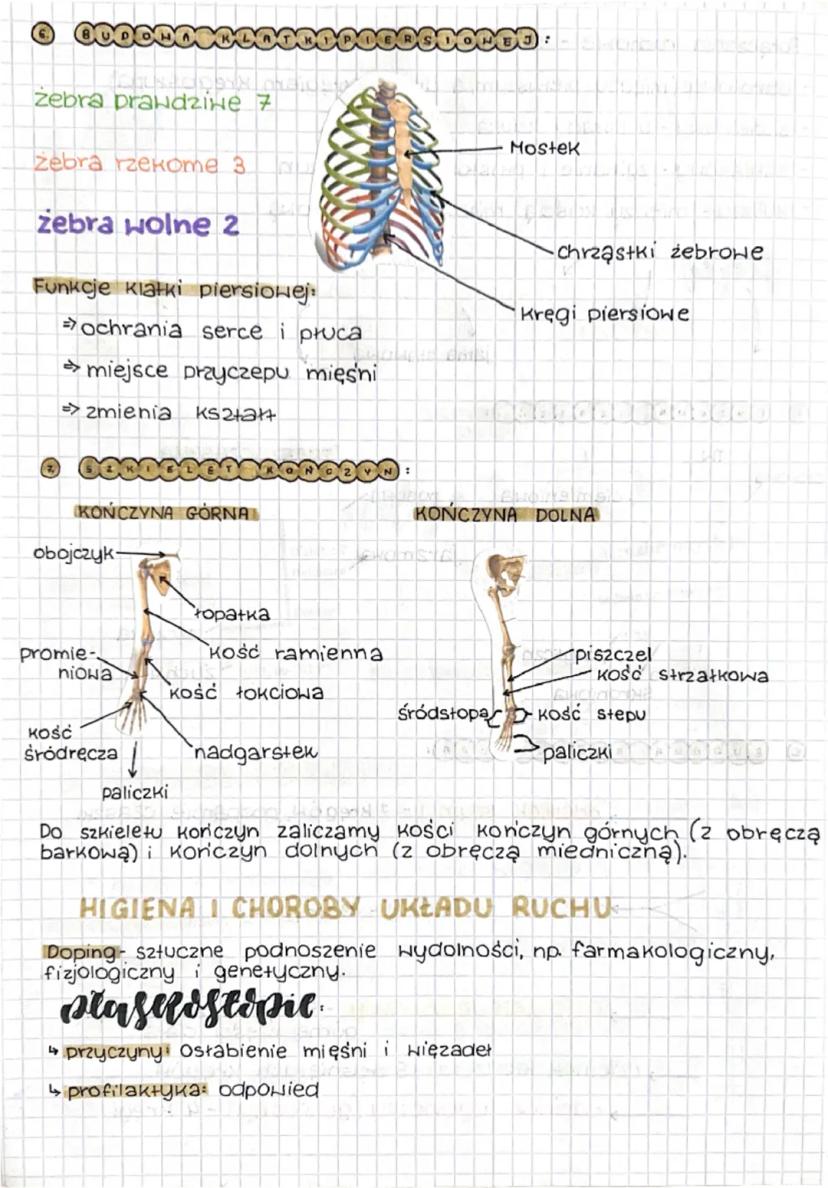 6. BUDOWA KLATKI PIERSIOWEJ:
żebra prawdziwe 7
żebra rzekome 3
żebra wolne 2
Mostek
chrząstki żebrowe
kręgi piersiowe
Funkcje klatki piersiowej:
⇒ ochrania serce i płuca
⇒ miejsce przyczepu mięśni
⇒ zmienia kształt
7. SZKIELET KOŃCZYN:
KOŃCZYNA GÓRNA
KOŃCZYNA DOLNA
obojczyk
łopatka
promie-
niowa
kość ramienna
kość łokciowa
kość
śródręcza
nadgarstek
paliczki
piszczel
kość strzałkowa
śródstopa
kość stepu
paliczki
Do szkieletu kończyn zaliczamy kości kończyn górnych (z obręczą
barkową) i kończyn dolnych (z obręczą miedniczną).
HIGIENA I CHOROBY UKŁADU RUCHU
Doping - sztuczne podnoszenie wydolności, np. farmakologiczny,
fizjologiczny i genetyczny.
płaskostopie:
↳ przyczyny: osłabienie mięśni i więzadeł
↳ profilaktyka: odpowied